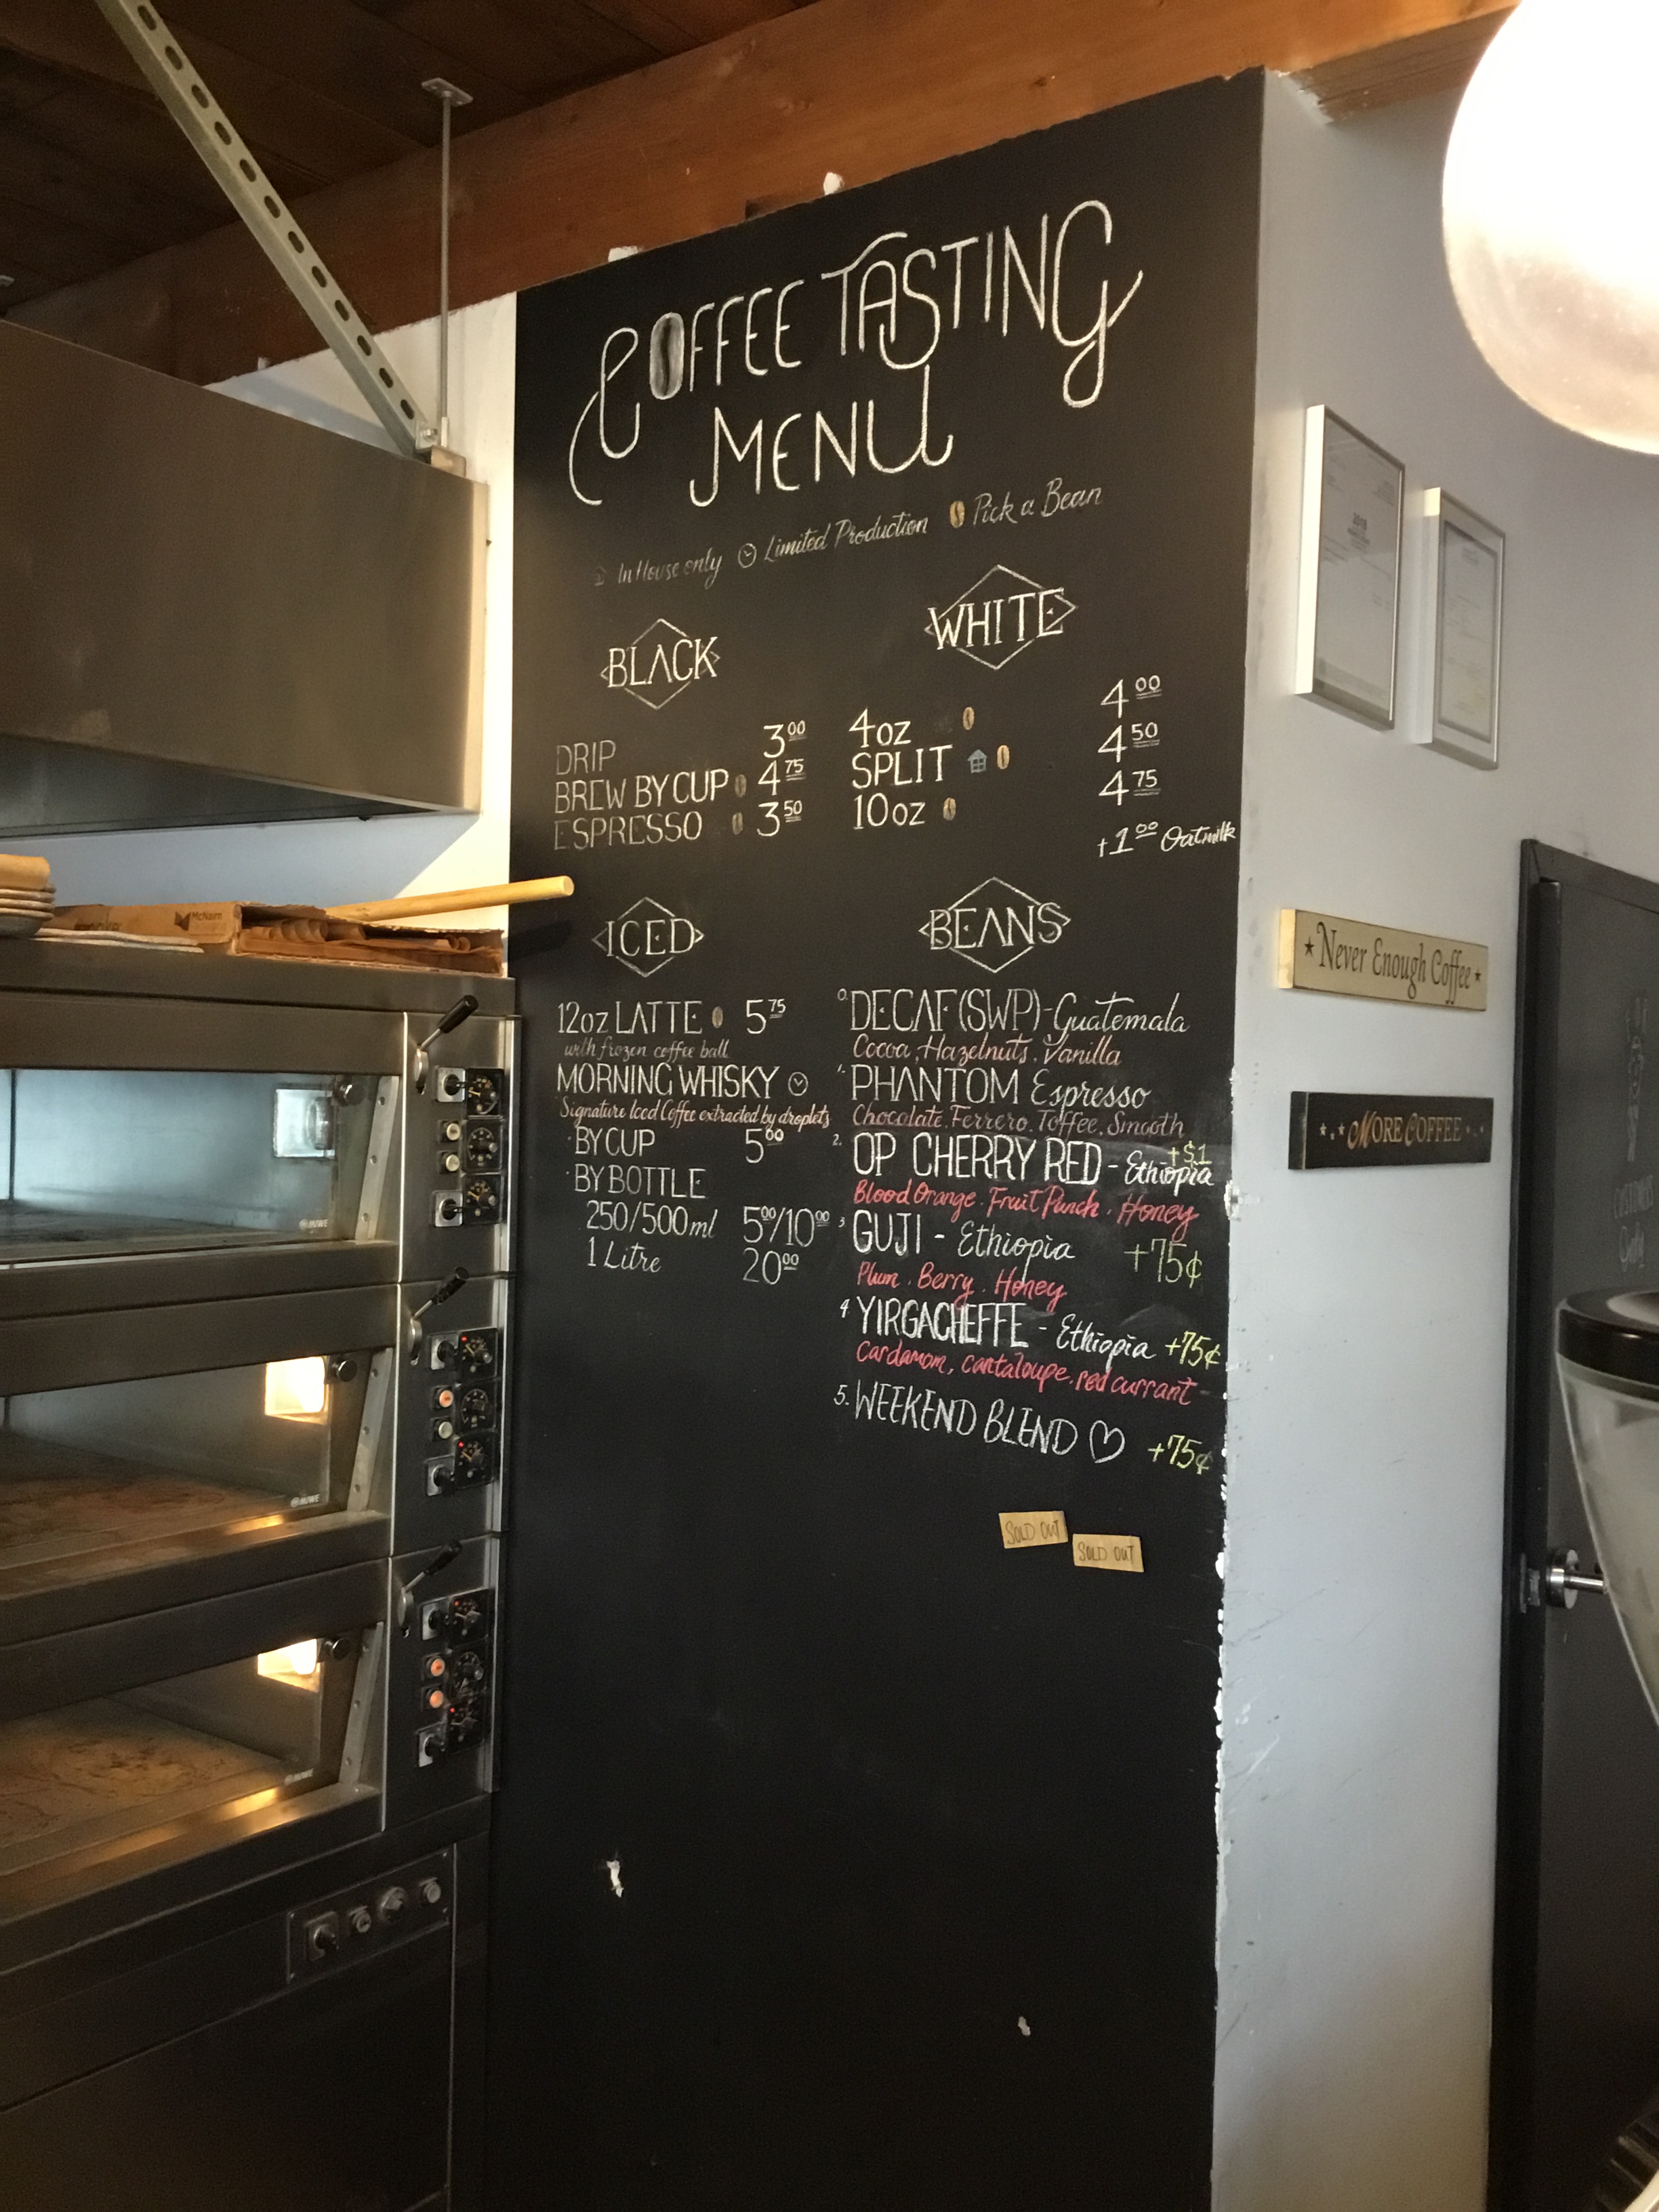 COFFEE TASTING
MENU
In House only Limited Production Pick a Bean
BLACK
DRIP 3.00
BREW BY CUP 4.75
ESPRESSO 3.50
WHITE
4oz 4.00
SPLIT 4.50
10oz 4.75
+1.00 Oatmilk
ICED
12oz LATTE 5.75
with frozen coffee ball
MORNING WHISKY
Signature Iced Coffee extracted by droplets
· BY CUP 5.00
· BY BOTTLE
250/500ml 5.00/10.00
1 Litre 20.00
BEANS
0. DECAF (SWP) - Guatemala
Cocoa, Hazelnuts. Vanilla
1. PHANTOM Espresso
Chocolate. Ferrero. Toffee. Smooth
2. OP CHERRY RED - Ethiopia +$1
Blood Orange. Fruit Punch. Honey
3. GUJI - Ethiopia +75¢
Plum. Berry. Honey
4. YIRGACHEFFE - Ethiopia +75¢
Cardamom, cantaloupe. red currant
5. WEEKEND BLEND ♡ +75¢
SOLD OUT
SOLD OUT
2018
Never Enough Coffee
MORE COFFEE
McNairn
MIWE
MIWE
MIWE